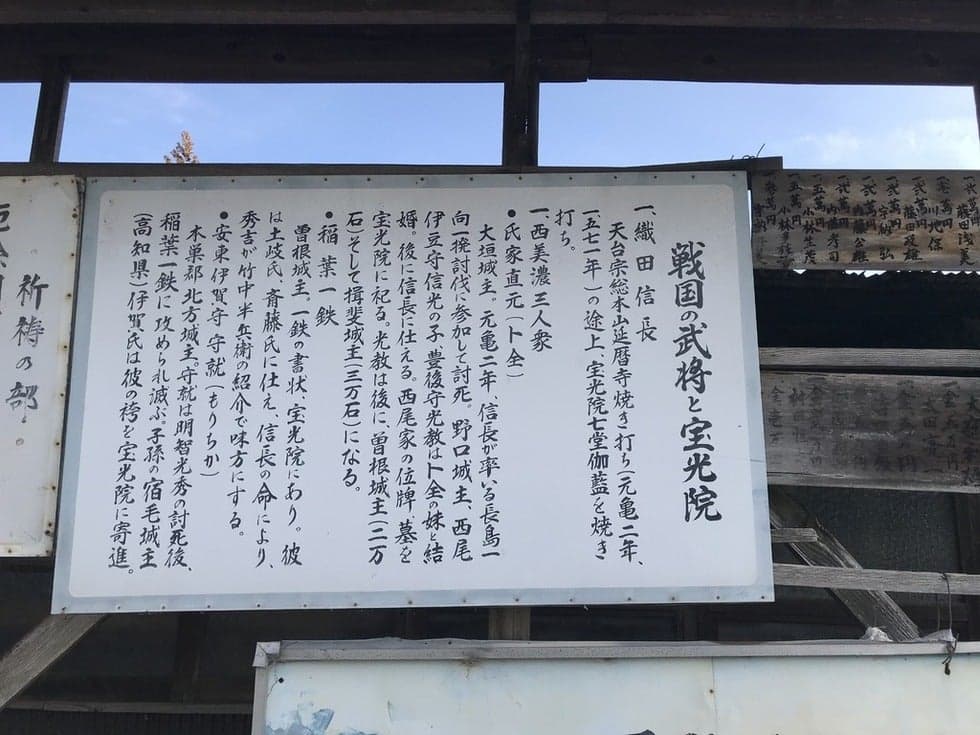 戦国の武将と宝光院
一、織田信長
天台宗総本山延暦寺焼き打ち(元亀二年、
一五七一年)の途上、宝光院七堂伽藍を焼き
打ち。
一、西美濃三人衆
●氏家直元(卜全)
大垣城主。元亀二年、信長が率いる長島一
向一揆討伐に参加して討死。野口城主、西尾
伊豆守信光の子、豊後守光教は卜全の妹と結
婚。後に信長に仕える。西尾家の位牌、墓を
宝光院に祀る。光教は後に、曽根城主(二万
石)そして揖斐城主(三万石)になる。
●稲葉一鉄
曽根城主。一鉄の書状、宝光院にあり。彼
は土岐氏、斎藤氏に仕え、信長の命により、
秀吉が竹中半兵衛の紹介で味方にする。
●安東伊賀守守就(もりちか)
本巣郡北方城主。守就は明智光秀の討死後、
稲葉一鉄に攻められ滅ぶ。子孫の宿毛城主
(高知県)伊賀氏は彼の袴を宝光院に寄進。
祈祷の部